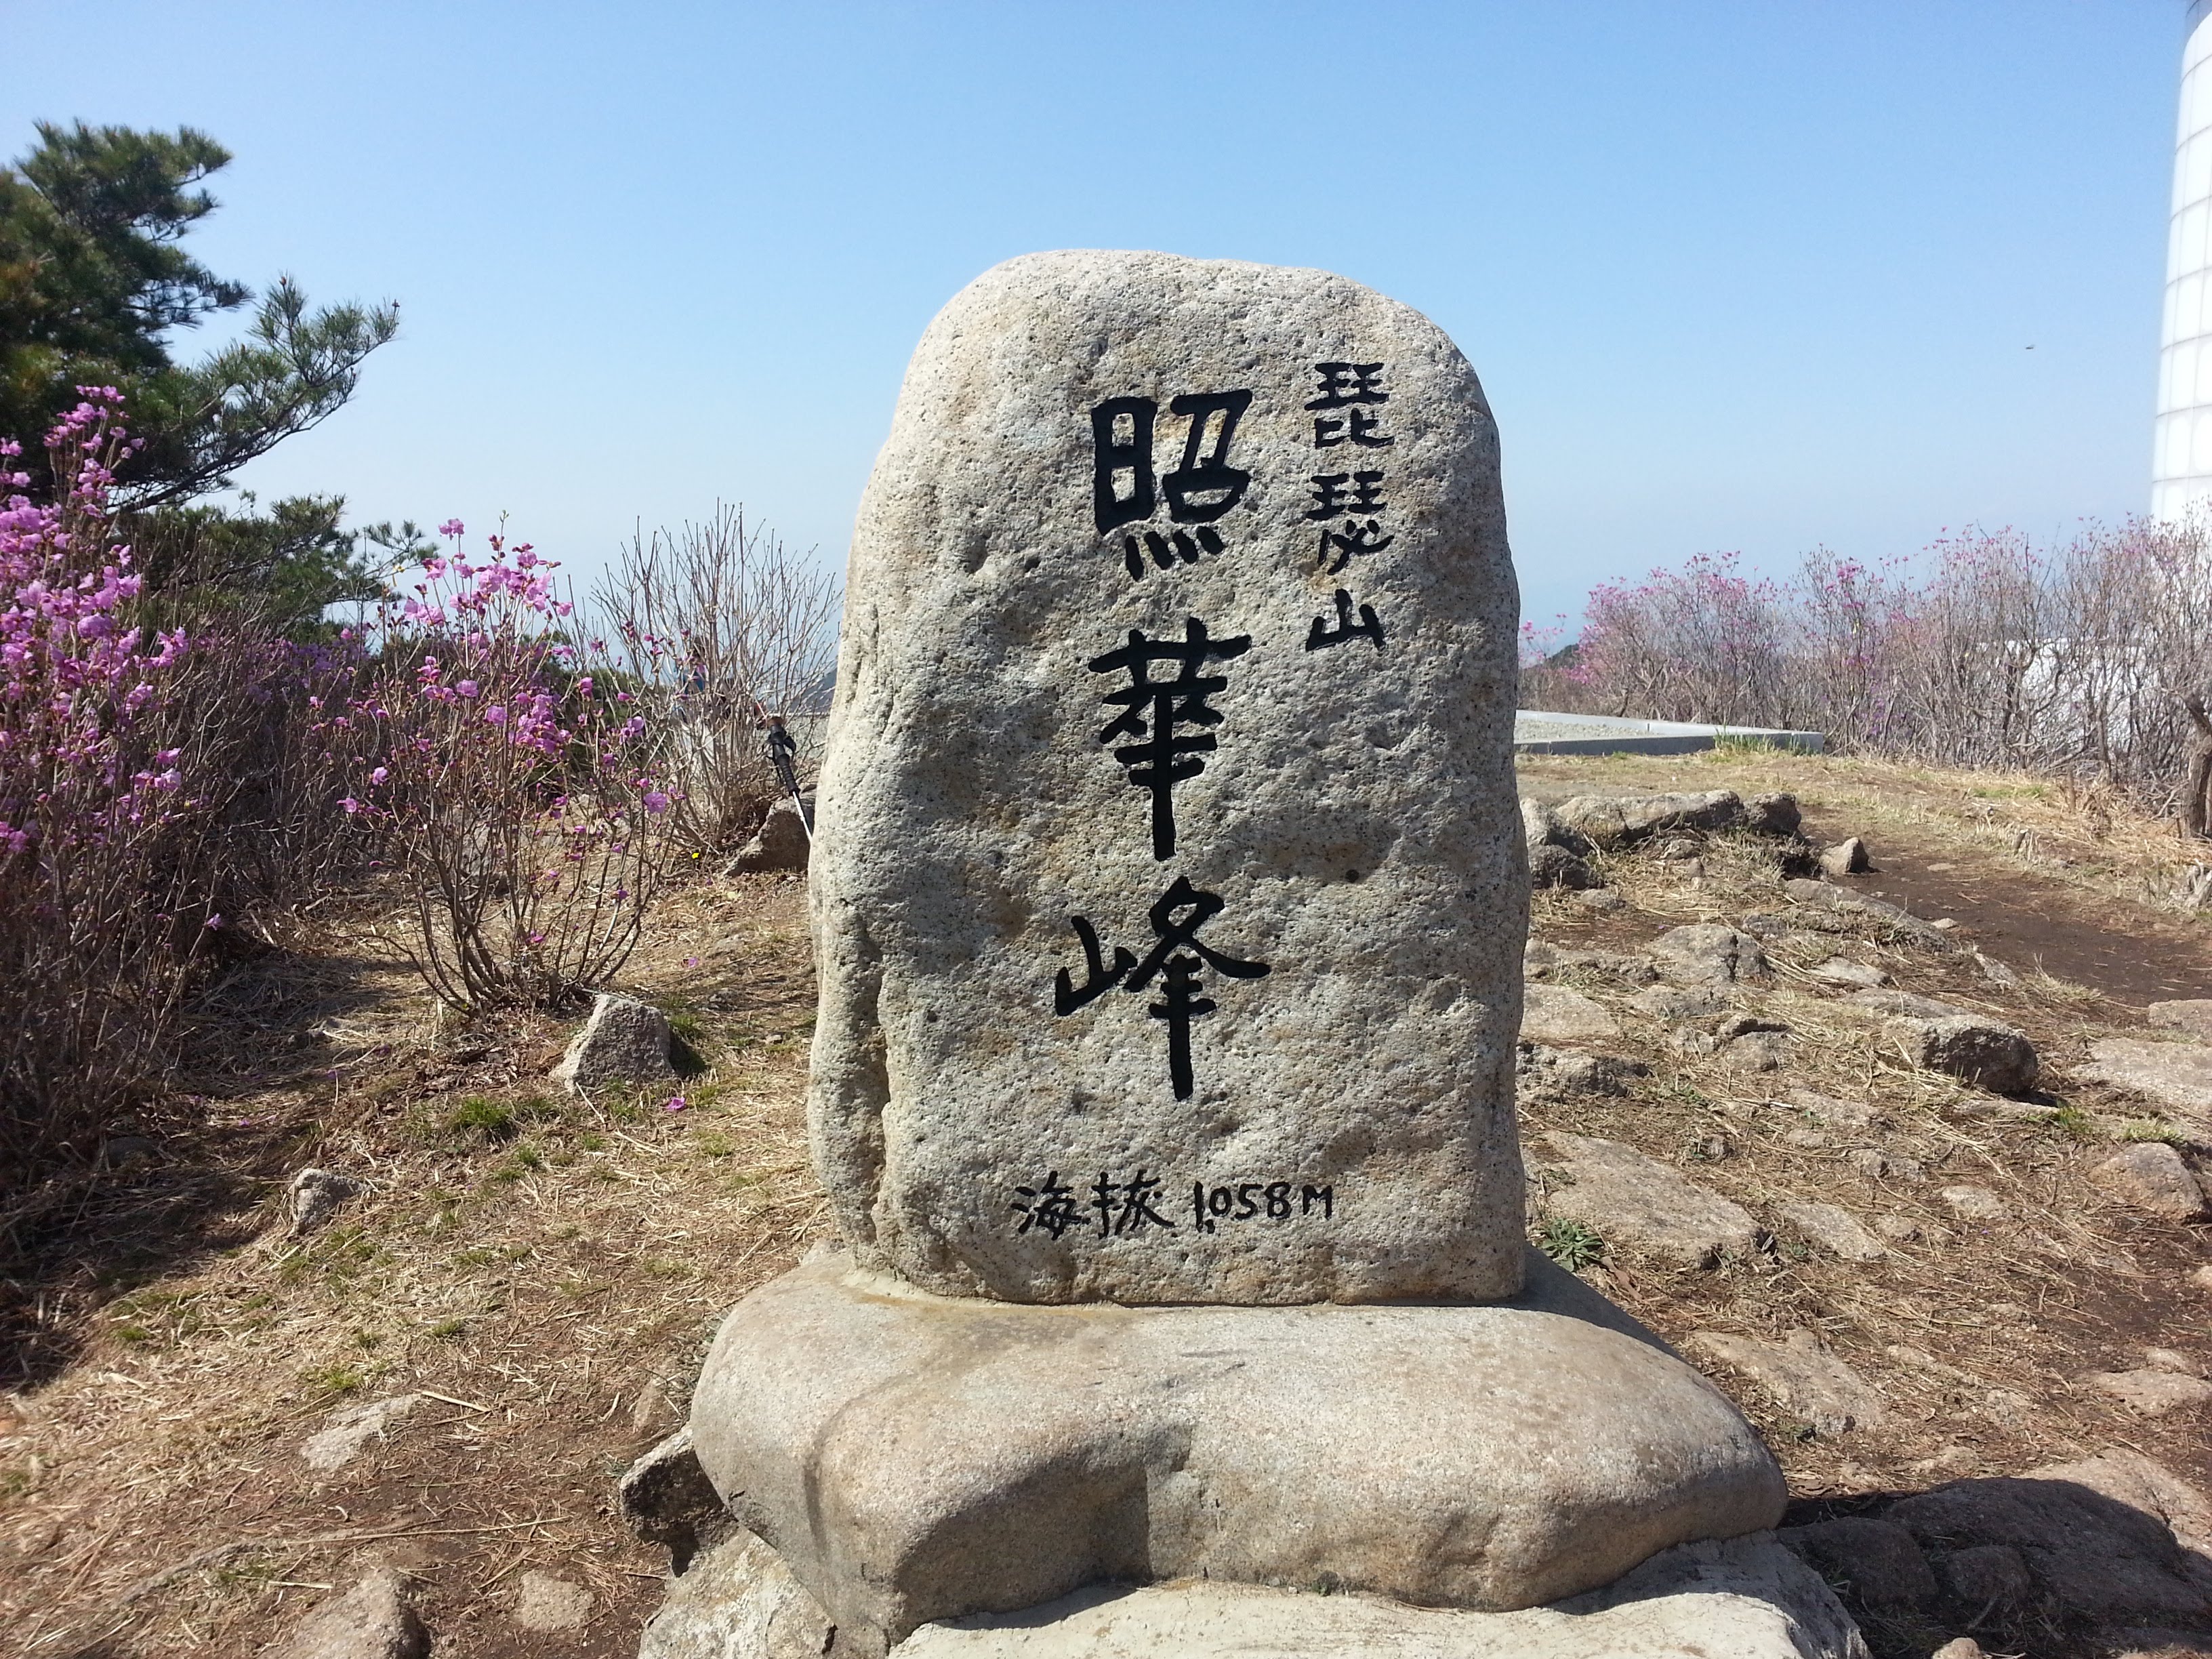 琵琶山
照華峰
海拔 1,058M